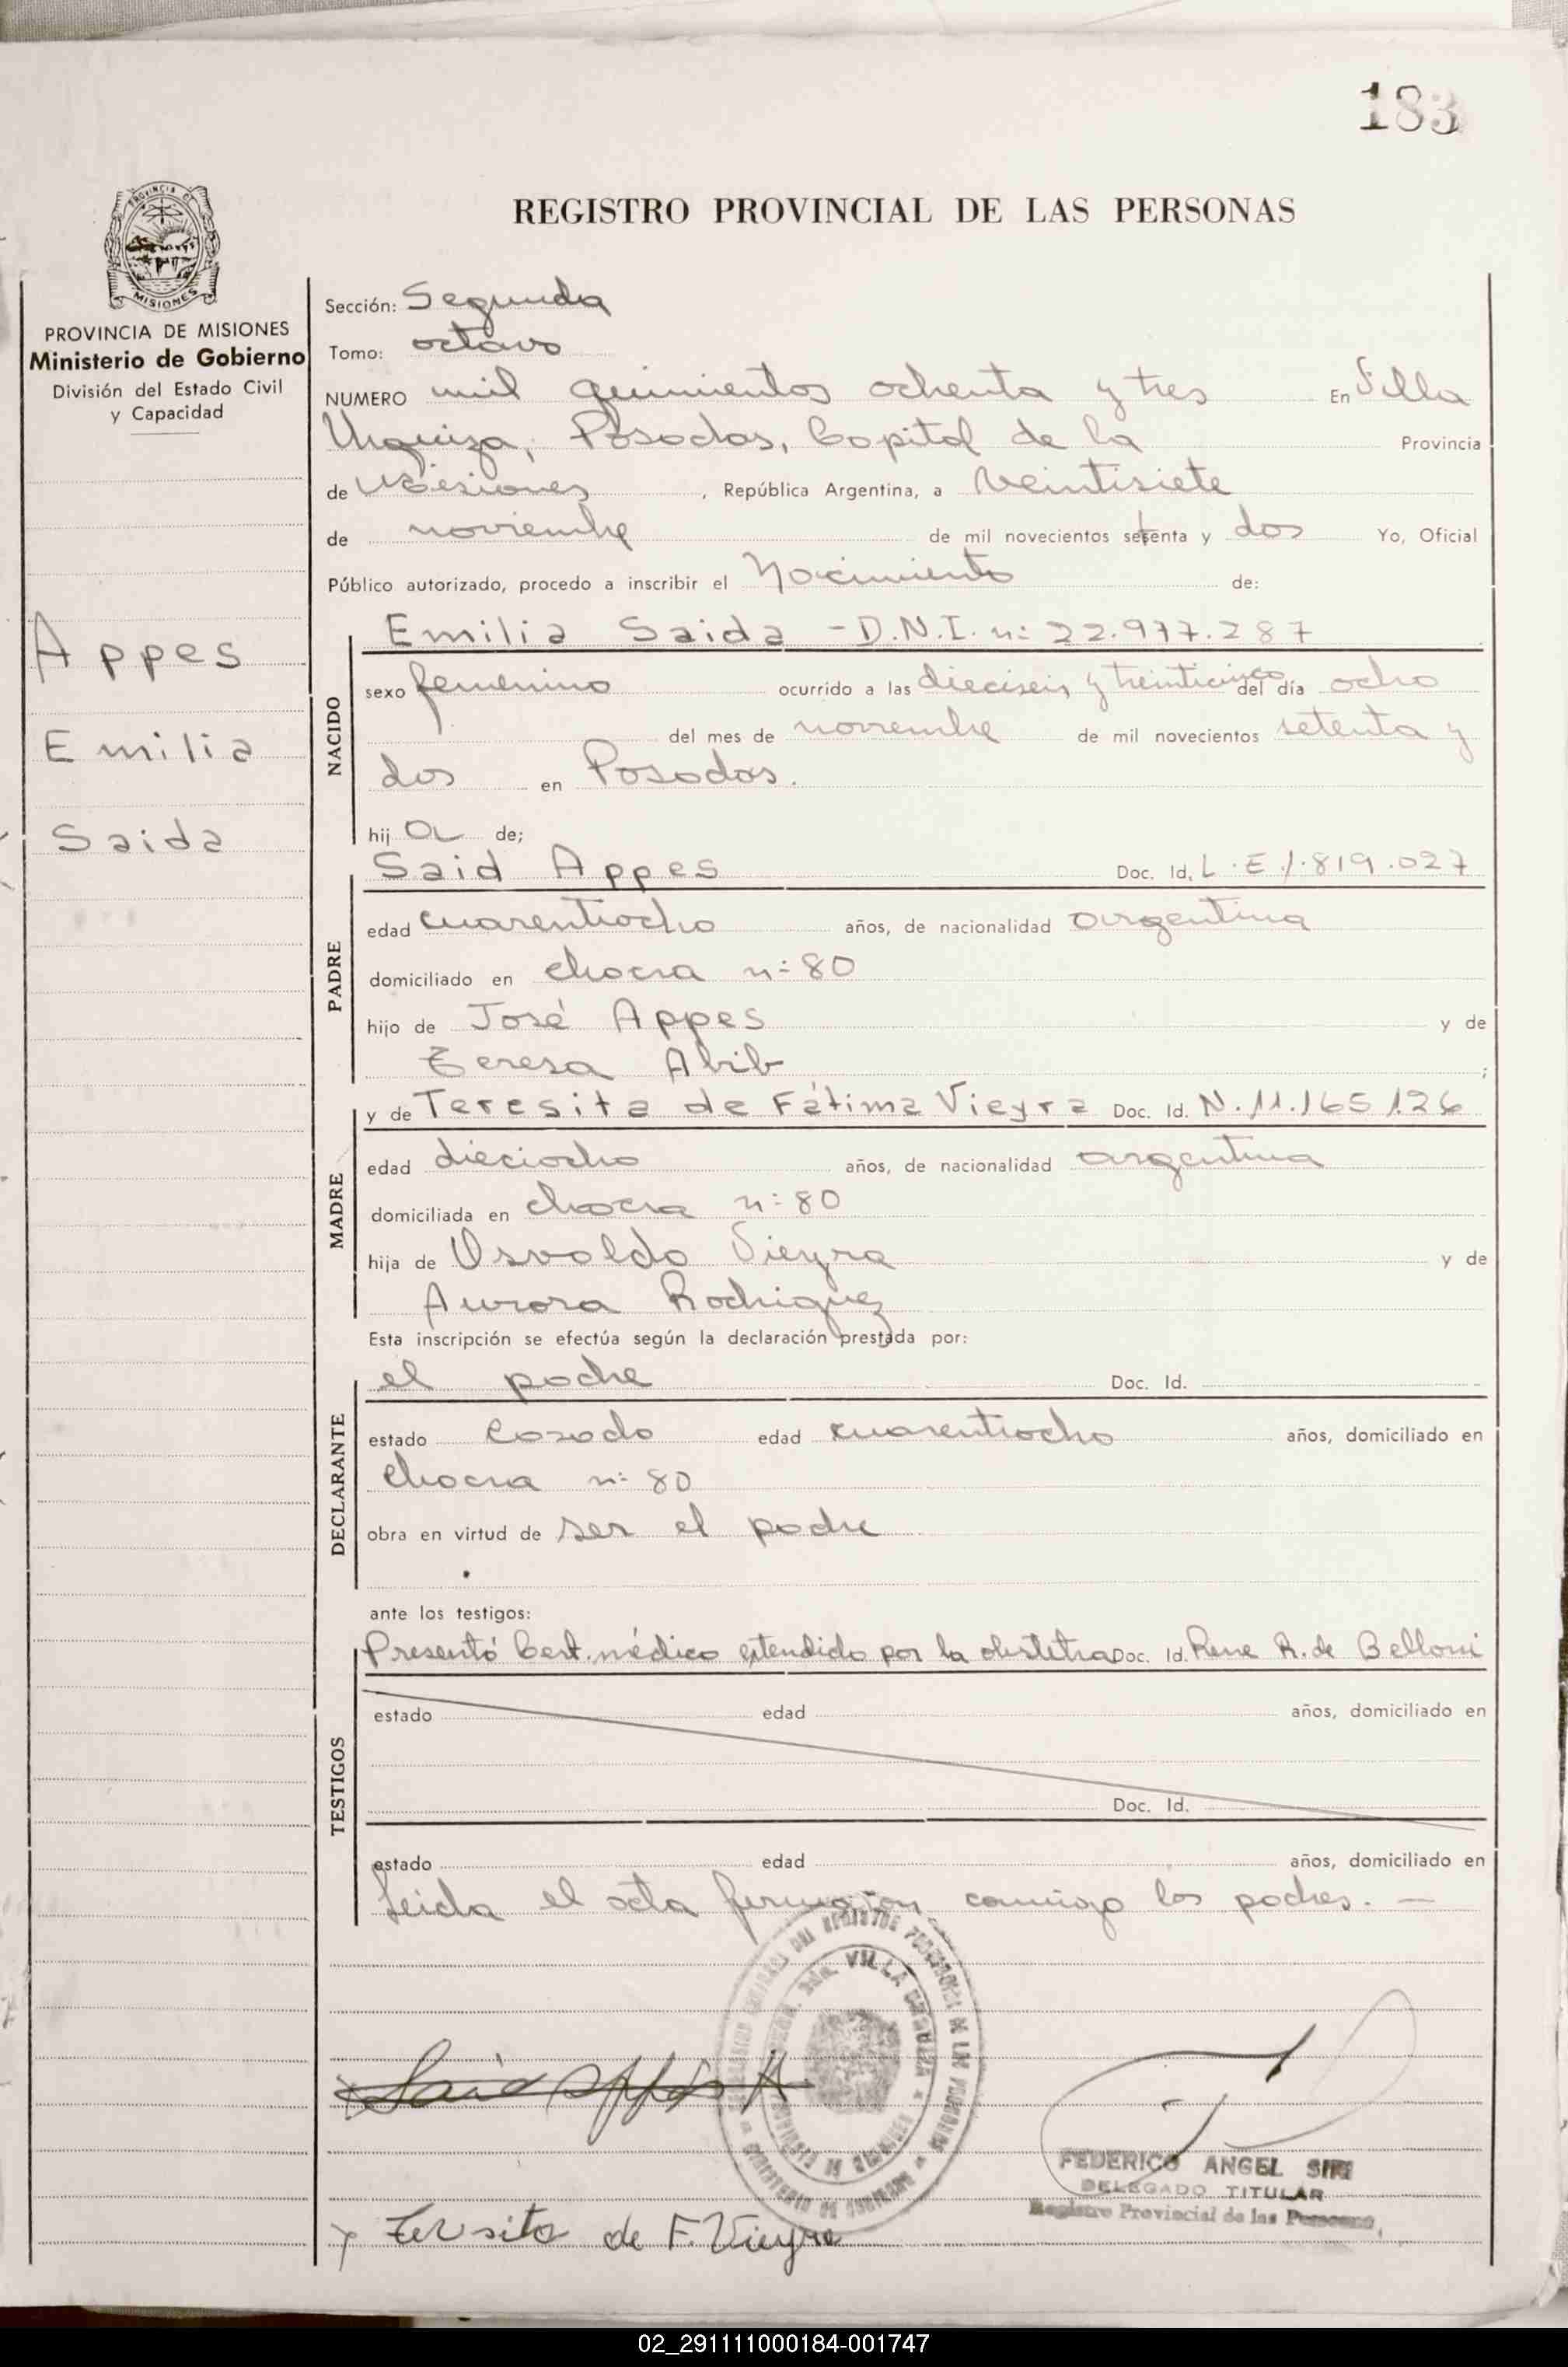 183
REGISTRO PROVINCIAL DE LAS PERSONAS
PROVINCIA DE
MISIONES
PROVINCIA DE MISIONES
Ministerio de Gobierno
División del Estado Civil
y Capacidad
Appes
Emilia
Saida
Sección: Segunda
Tomo: octavo
NUMERO mil quinientos ochenta y tres En Villa
Urquiza, Posadas, Capital de la Provincia
de Misiones, República Argentina, a veintisiete
de noviembre de mil novecientos setenta y dos Yo, Oficial
Público autorizado, procedo a inscribir el Nacimiento de:
NACIDO
Emilia Saida - D.N.I. n: 22.977.287
sexo femenino ocurrido a las dieciseis y treinticinco del día ocho
del mes de noviembre de mil novecientos setenta y
dos en Posadas.
hija de;
PADRE
Said Appes Doc. Id. L.E 1.819.027
edad cuarentiocho años, de nacionalidad argentina
domiciliado en chacra n: 80
hijo de José Appes y de
Teresa Abib ;
MADRE
y de Teresita de Fátima Vieyra Doc. Id. N. 11.165.126
edad dieciocho años, de nacionalidad argentina
domiciliada en chacra n: 80
hija de Osvaldo Vieyra y de
Aurora Rodriguez
Esta inscripción se efectúa según la declaración prestada por:
DECLARANTE
el padre Doc. Id.
estado casado edad cuarentiocho años, domiciliado en
chacra n: 80
obra en virtud de ser el padre
ante los testigos:
TESTIGOS
Presentó Cert. médico extendido por la obstetra Doc. Id. Rene R. de Belloni
estado edad años, domiciliado en
Doc. Id.
estado edad años, domiciliado en
Leida el acta firman conmigo los padres. —
Said Appes A
FEDERICO ANGEL SIRI
DELEGADO TITULAR
Registro Provincial de las Personas
Teresita de F. Vieyra
02_291111000184-001747